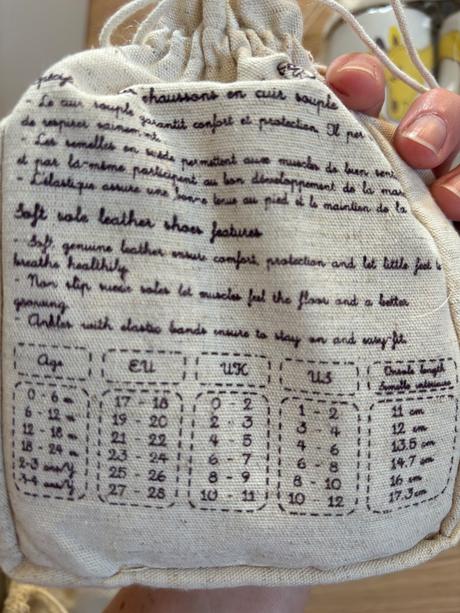 chaussons en cuir souple
- Le cuir souple garantit confort et protection. Il per
de respirer sainement.
- Les semelles en suède permettent aux muscles de bien sent
et par là-même participent au bon développement de la mar
- L'élastique assure une bonne tenue au pied et le maintien de la
Soft sole leather shoes features
- Soft, genuine leather ensure comfort, protection and let little feet to
breathe healthily
- Non slip suede soles let muscles feel the floor and a better
growing.
- Ankles with elastic bands ensure to stay on and easy-fit.
Age EU UK US Insole length
Semelle intérieure
0 - 6 m 17 - 18 0 - 2 1 - 2 11 cm
6 - 12 m 19 - 20 2 - 3 3 - 4 12 cm
12 - 18 m 21 - 22 4 - 5 4 - 6 13.5 cm
18 - 24 m 23 - 24 6 - 7 6 - 8 14.7 cm
2-3 ans/Y 25 - 26 8 - 9 8 - 10 16 cm
3-4 ans/Y 27 - 28 10 - 11 10 - 12 17.3 cm